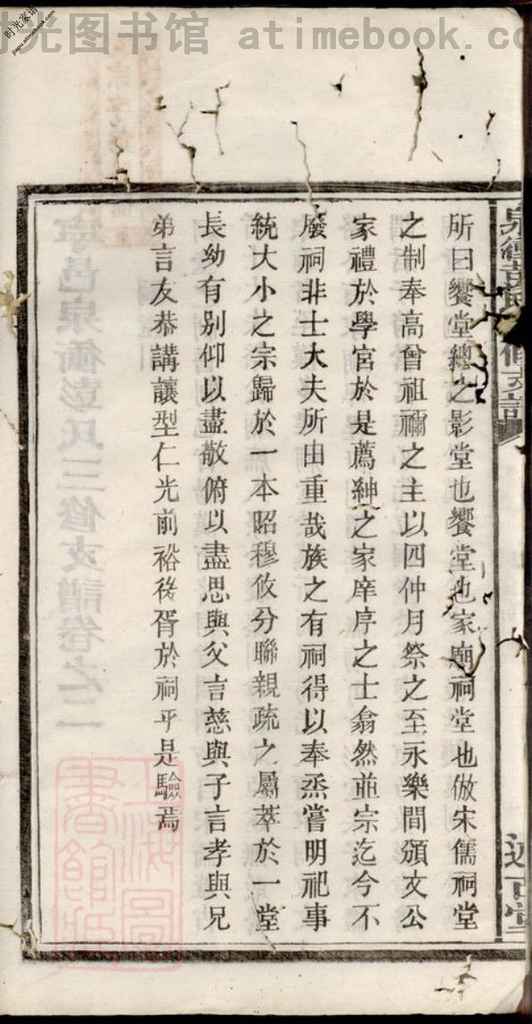 时光图书馆 - atimebook.com
所曰饗堂總之影堂也饗堂也家廟祠堂也倣宋儒祠堂
之制奉高曾祖禰之主以四仲月祭之至永樂間頒文公
家禮於學宮於是薦紳之家庠序之士翕然並宗迄今不
廢祠非士大夫所由重哉族之有祠得以奉烝嘗明祀事
統大小之宗歸於一本昭穆攸分聯親疏之屬萃於一堂
長幼有别仰以盡敬俯以盡思與父言慈與子言孝與兄
弟言友恭講讓型仁光前裕後胥於祠乎是驗焉
寧邑泉衝彭氏三修支譜卷之二